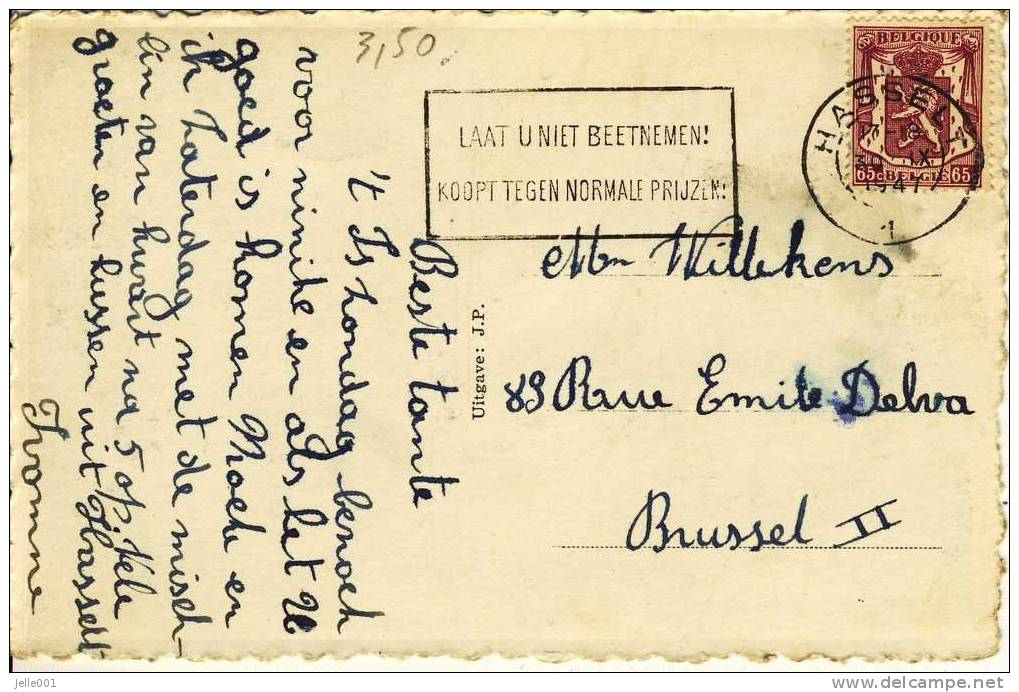 3,50.
BELGIQUE
65 c BELGIE 65
HASSELT
1
LAAT U NIET BEETNEMEN!
KOOPT TEGEN NORMALE PRIJZEN!
Uitgave: J.P.
Willekens
83 Rue Emile Delva
Brussel II
Beste tante
't Is zondag
voor minike en als het U
goed is komen Moeke en
ik zaterdag met de misch-
lin van kwart na 5 op. Vele
groeten en kussen uit Hasselt
Ivonne
jelle001
delcampe.net